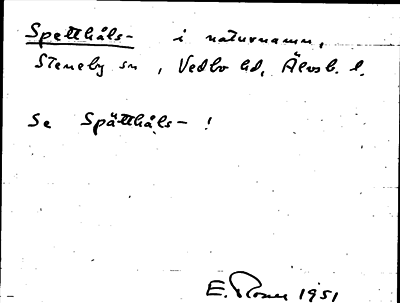 Spetthåls- i naturnamn,
Steneby sn, Vedbo hd, Älvsb. l.
Se Spätthåls- !
E. Rosen 1951